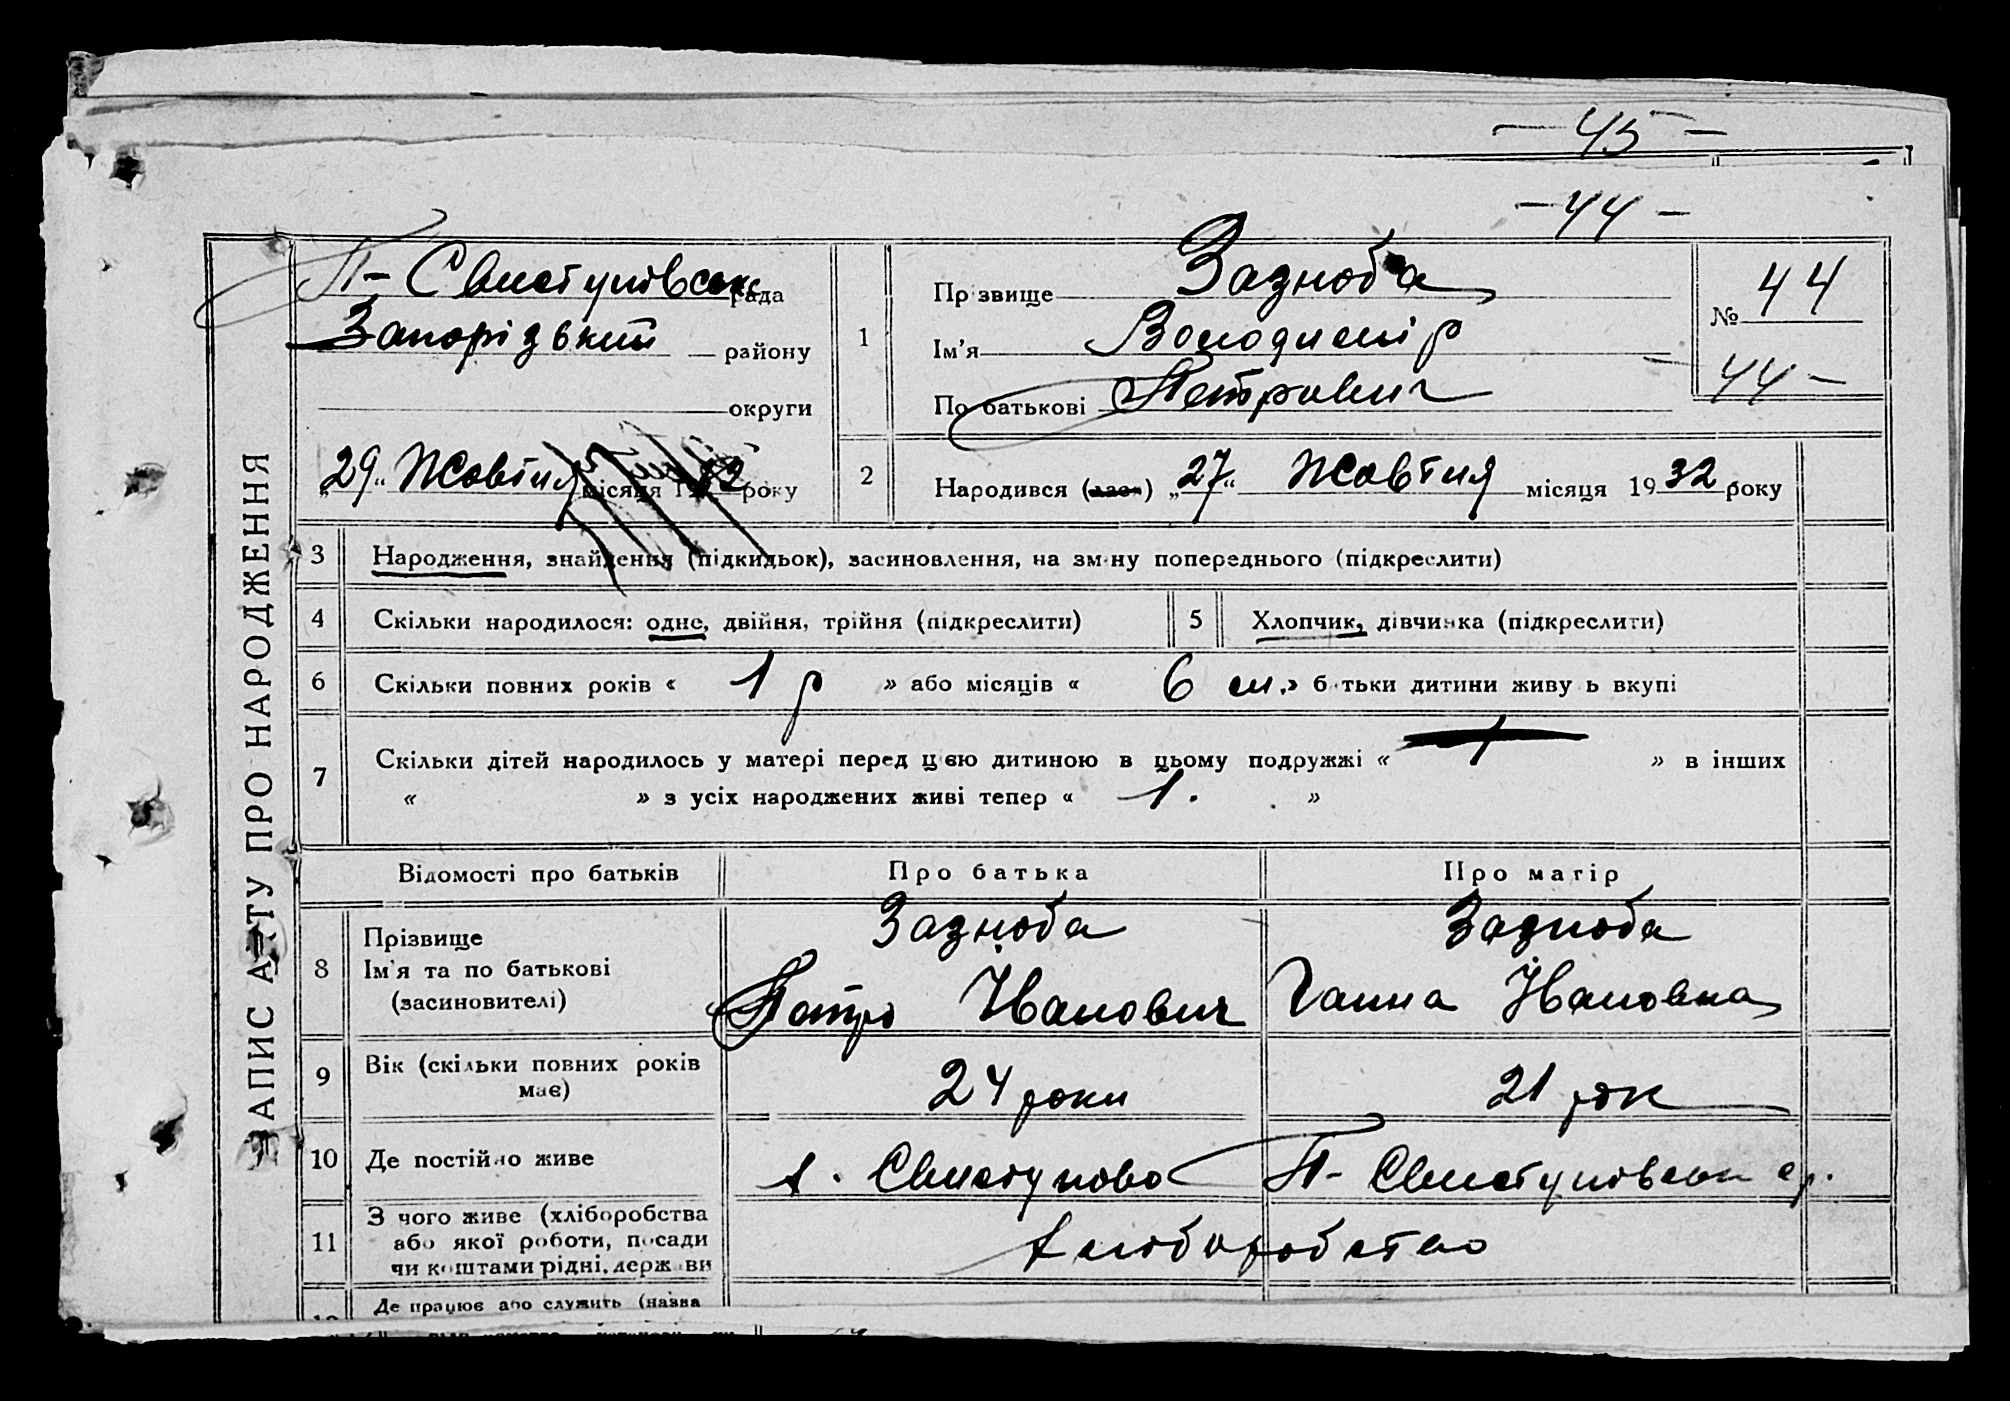 — 45 —
— 44 —
ЗАПИС АКТУ ПРО НАРОДЖЕННЯ
П- Свистунівськ рада
Запорізький району
округи
„29“ Жовтня місяця 1932 року
1
Прізвище Задноба
Ім'я Володимір
По батькові Петрович
№ 44
44 —
2
Народився (лася) „27“ Жовтня місяця 1932 року
3 Народження, знайдення (підкидьок), засиновлення, на зміну попереднього (підкреслити)
4 Скільки народилося: одне, двійня, трійня (підкреслити)
5 Хлопчик, дівчинка (підкреслити)
6 Скільки повних років « 1 р » або місяців « 6 м. » батьки дитини живуть вкупі
7 Скільки дітей народилось у матері перед цією дитиною в цьому подружжі « » в інших
« » з усіх народжених живі тепер « 1. »
Відомості про батьків Про батька Про матір
8 Прізвище
Ім'я та по батькові
(засиновителі)
Задноба
Петро Іванович
Задноба
Ганна Івановна
9 Вік (скільки повних років
має)
24 роки 21 рок
10 Де постійно живе
с. Свистуново П- Свистунівськ ср.
11 З чого живе (хліборобства
або якої роботи, посади
чи коштами рідні, держави
хліборобство
Де працює або служить (назва